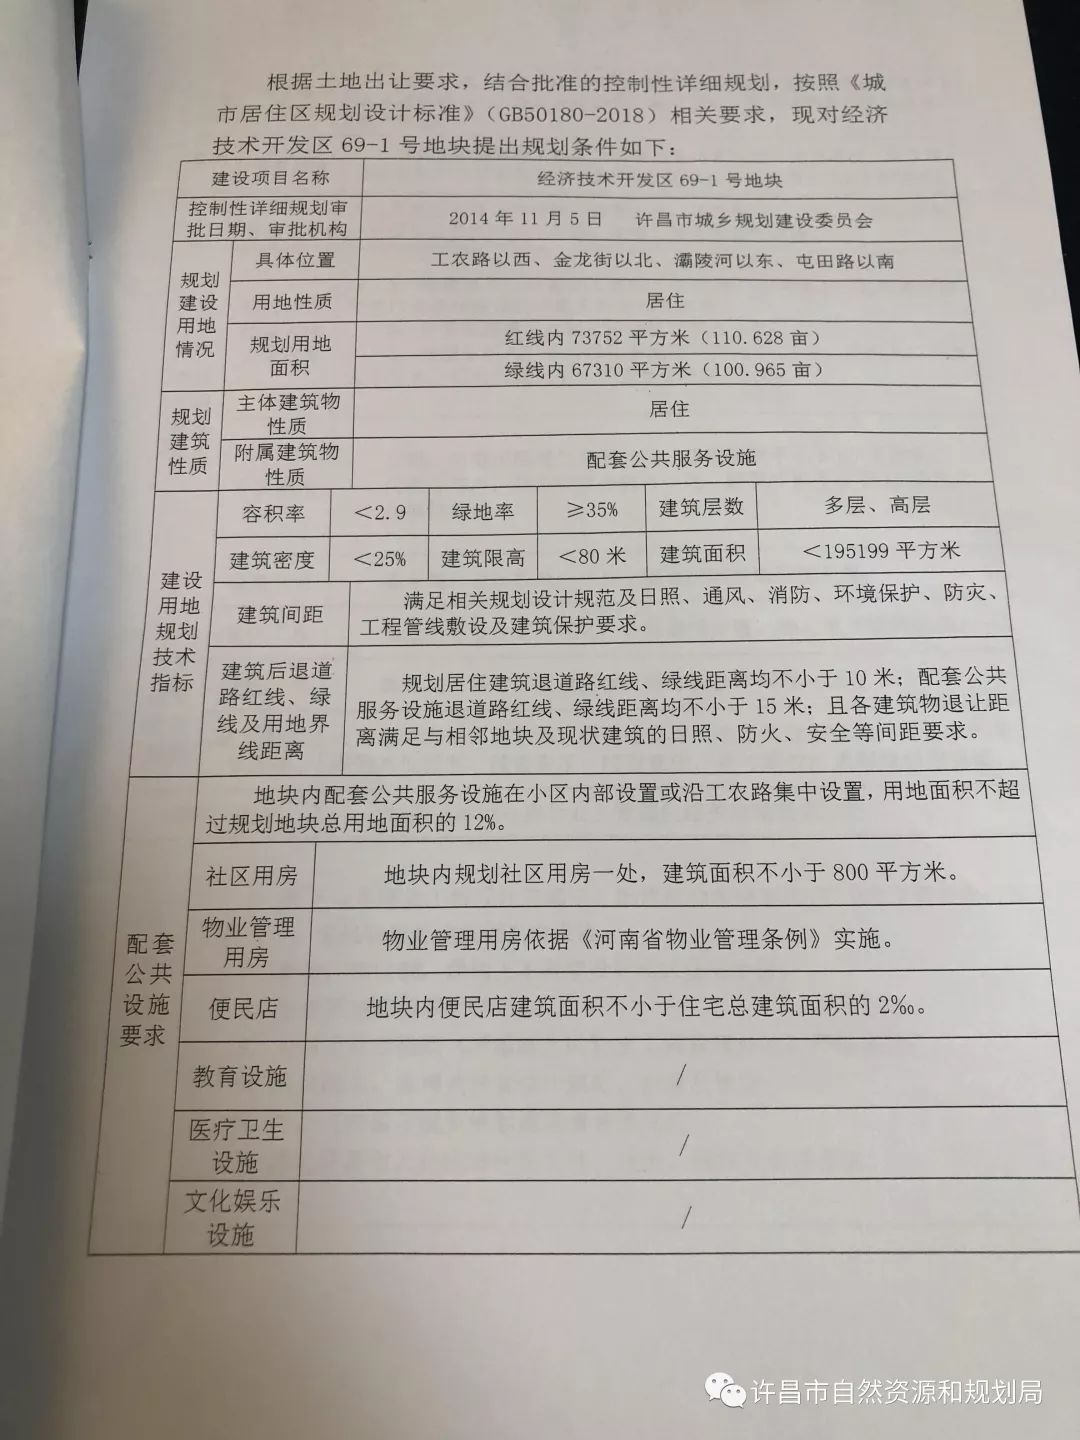 根据土地出让要求，结合批准的控制性详细规划，按照《城
市居住区规划设计标准》（GB50180-2018）相关要求，现对经济
技术开发区 69-1 号地块提出规划条件如下：
建设项目名称
经济技术开发区 69-1 号地块
控制性详细规划审
批日期、审批机构
2014 年 11 月 5 日 许昌市城乡规划建设委员会
规划
建设
用地
情况
具体位置
工农路以西、金龙街以北、灞陵河以东、屯田路以南
用地性质
居住
规划用地
面积
红线内 73752 平方米（110.628 亩）
绿线内 67310 平方米（100.965 亩）
规划
建筑
性质
主体建筑物
性质
居住
附属建筑物
性质
配套公共服务设施
建设
用地
规划
技术
指标
容积率
＜2.9
绿地率
≥35%
建筑层数
多层、高层
建筑密度
＜25%
建筑限高
＜80 米
建筑面积
＜195199 平方米
建筑间距
满足相关规划设计规范及日照、通风、消防、环境保护、防灾、
工程管线敷设及建筑保护要求。
建筑后退道
路红线、绿
线及用地界
线距离
规划居住建筑退道路红线、绿线距离均不小于 10 米；配套公共
服务设施退道路红线、绿线距离均不小于 15 米；且各建筑物退让距
离满足与相邻地块及现状建筑的日照、防火、安全等间距要求。
配套
公共
设施
要求
地块内配套公共服务设施在小区内部设置或沿工农路集中设置，用地面积不超
过规划地块总用地面积的 12%。
社区用房
地块内规划社区用房一处，建筑面积不小于 800 平方米。
物业管理
用房
物业管理用房依据《河南省物业管理条例》实施。
便民店
地块内便民店建筑面积不小于住宅总建筑面积的 2‰。
教育设施
/
医疗卫生
设施
/
文化娱乐
设施
/
许昌市自然资源和规划局